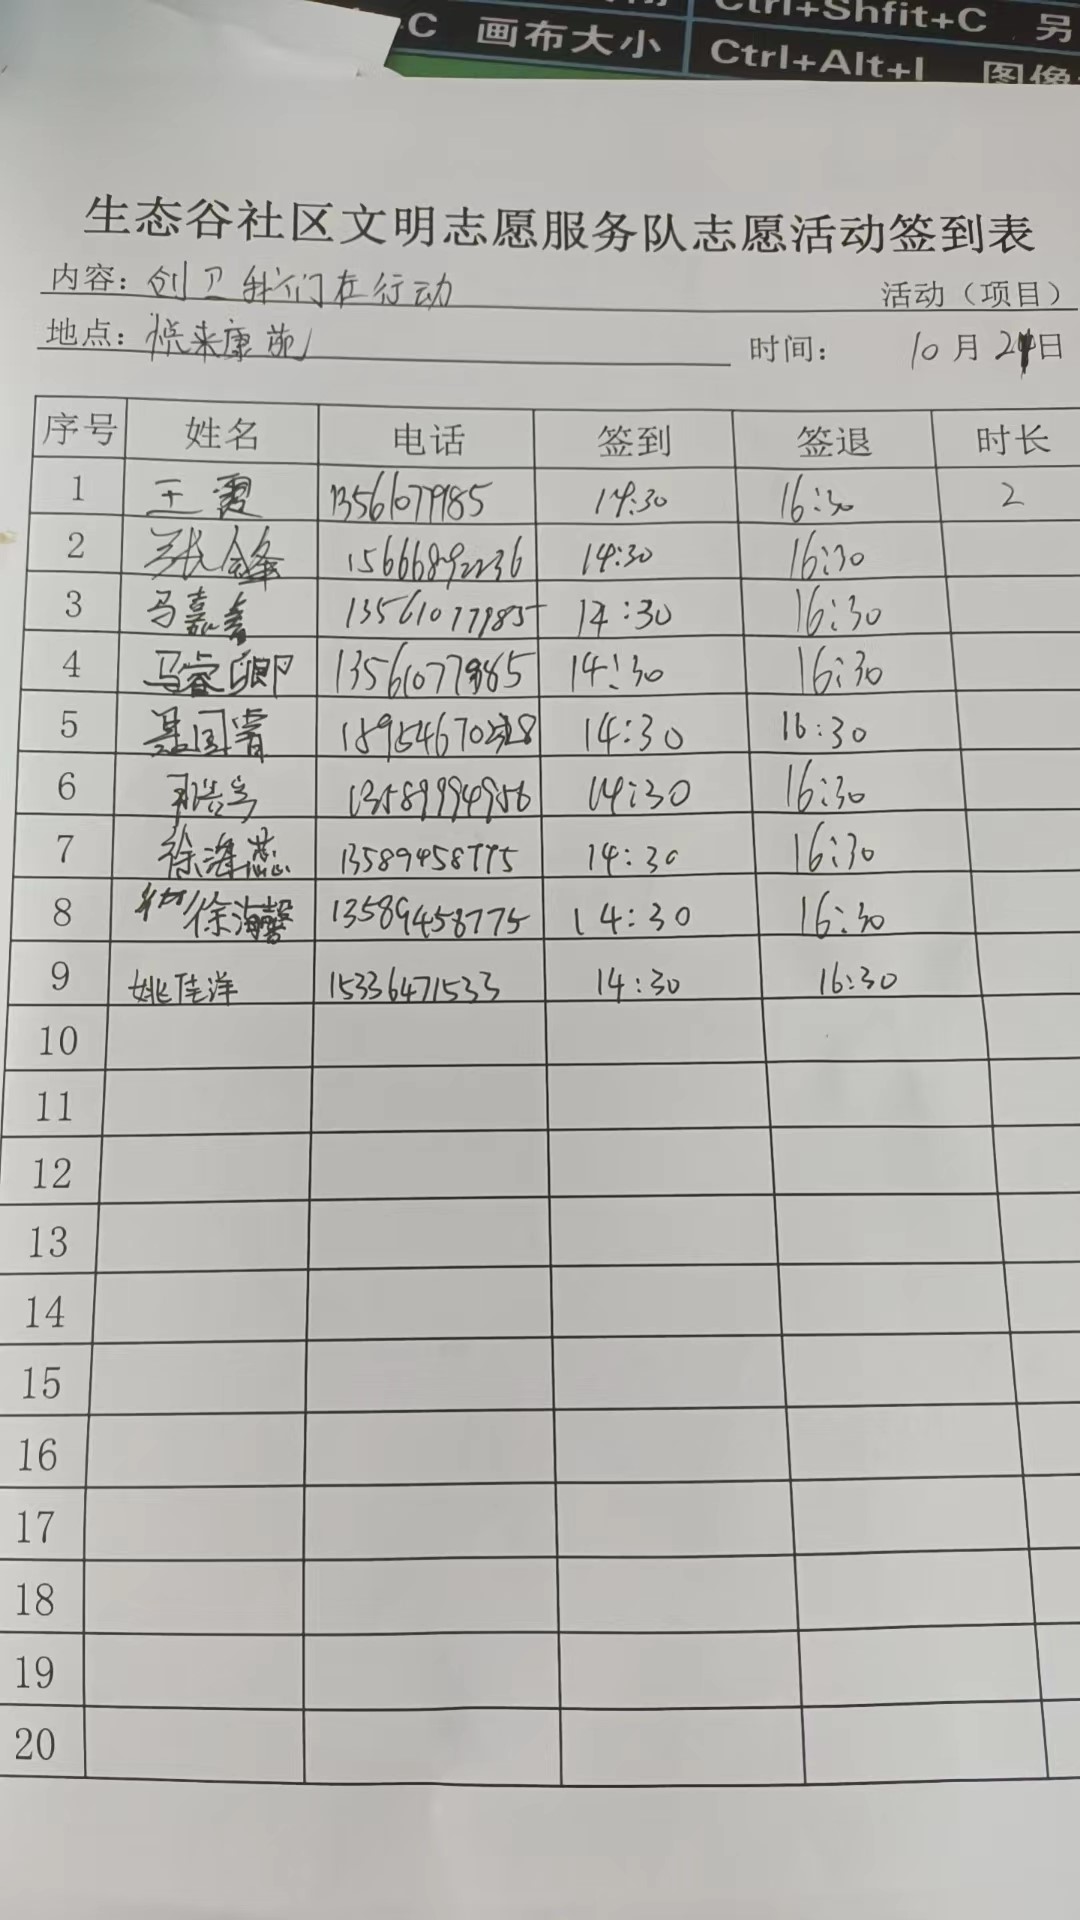 C 画布大小 Ctrl+Shfit+C 另
Ctrl+Alt+I 图像
生态谷社区文明志愿服务队志愿活动签到表
内容：创卫我们在行动 活动（项目）
地点：悦来康苑 时间： 10月24日
序号 姓名 电话 签到 签退 时长
1 王霞 13561077985 14:30 16:30 2
2 张会峰 15666892236 14:30 16:30
3 马嘉鑫 13561077985 14:30 16:30
4 马睿卿 13561077985 14:30 16:30
5 14:30 16:30
6 13589994956 14:30 16:30
7 徐海蕊 13589458775 14:30 16:30
8 徐海馨 13589458775 14:30 16:30
9 姚佳洋 15336471533 14:30 16:30
10
11
12
13
14
15
16
17
18
19
20